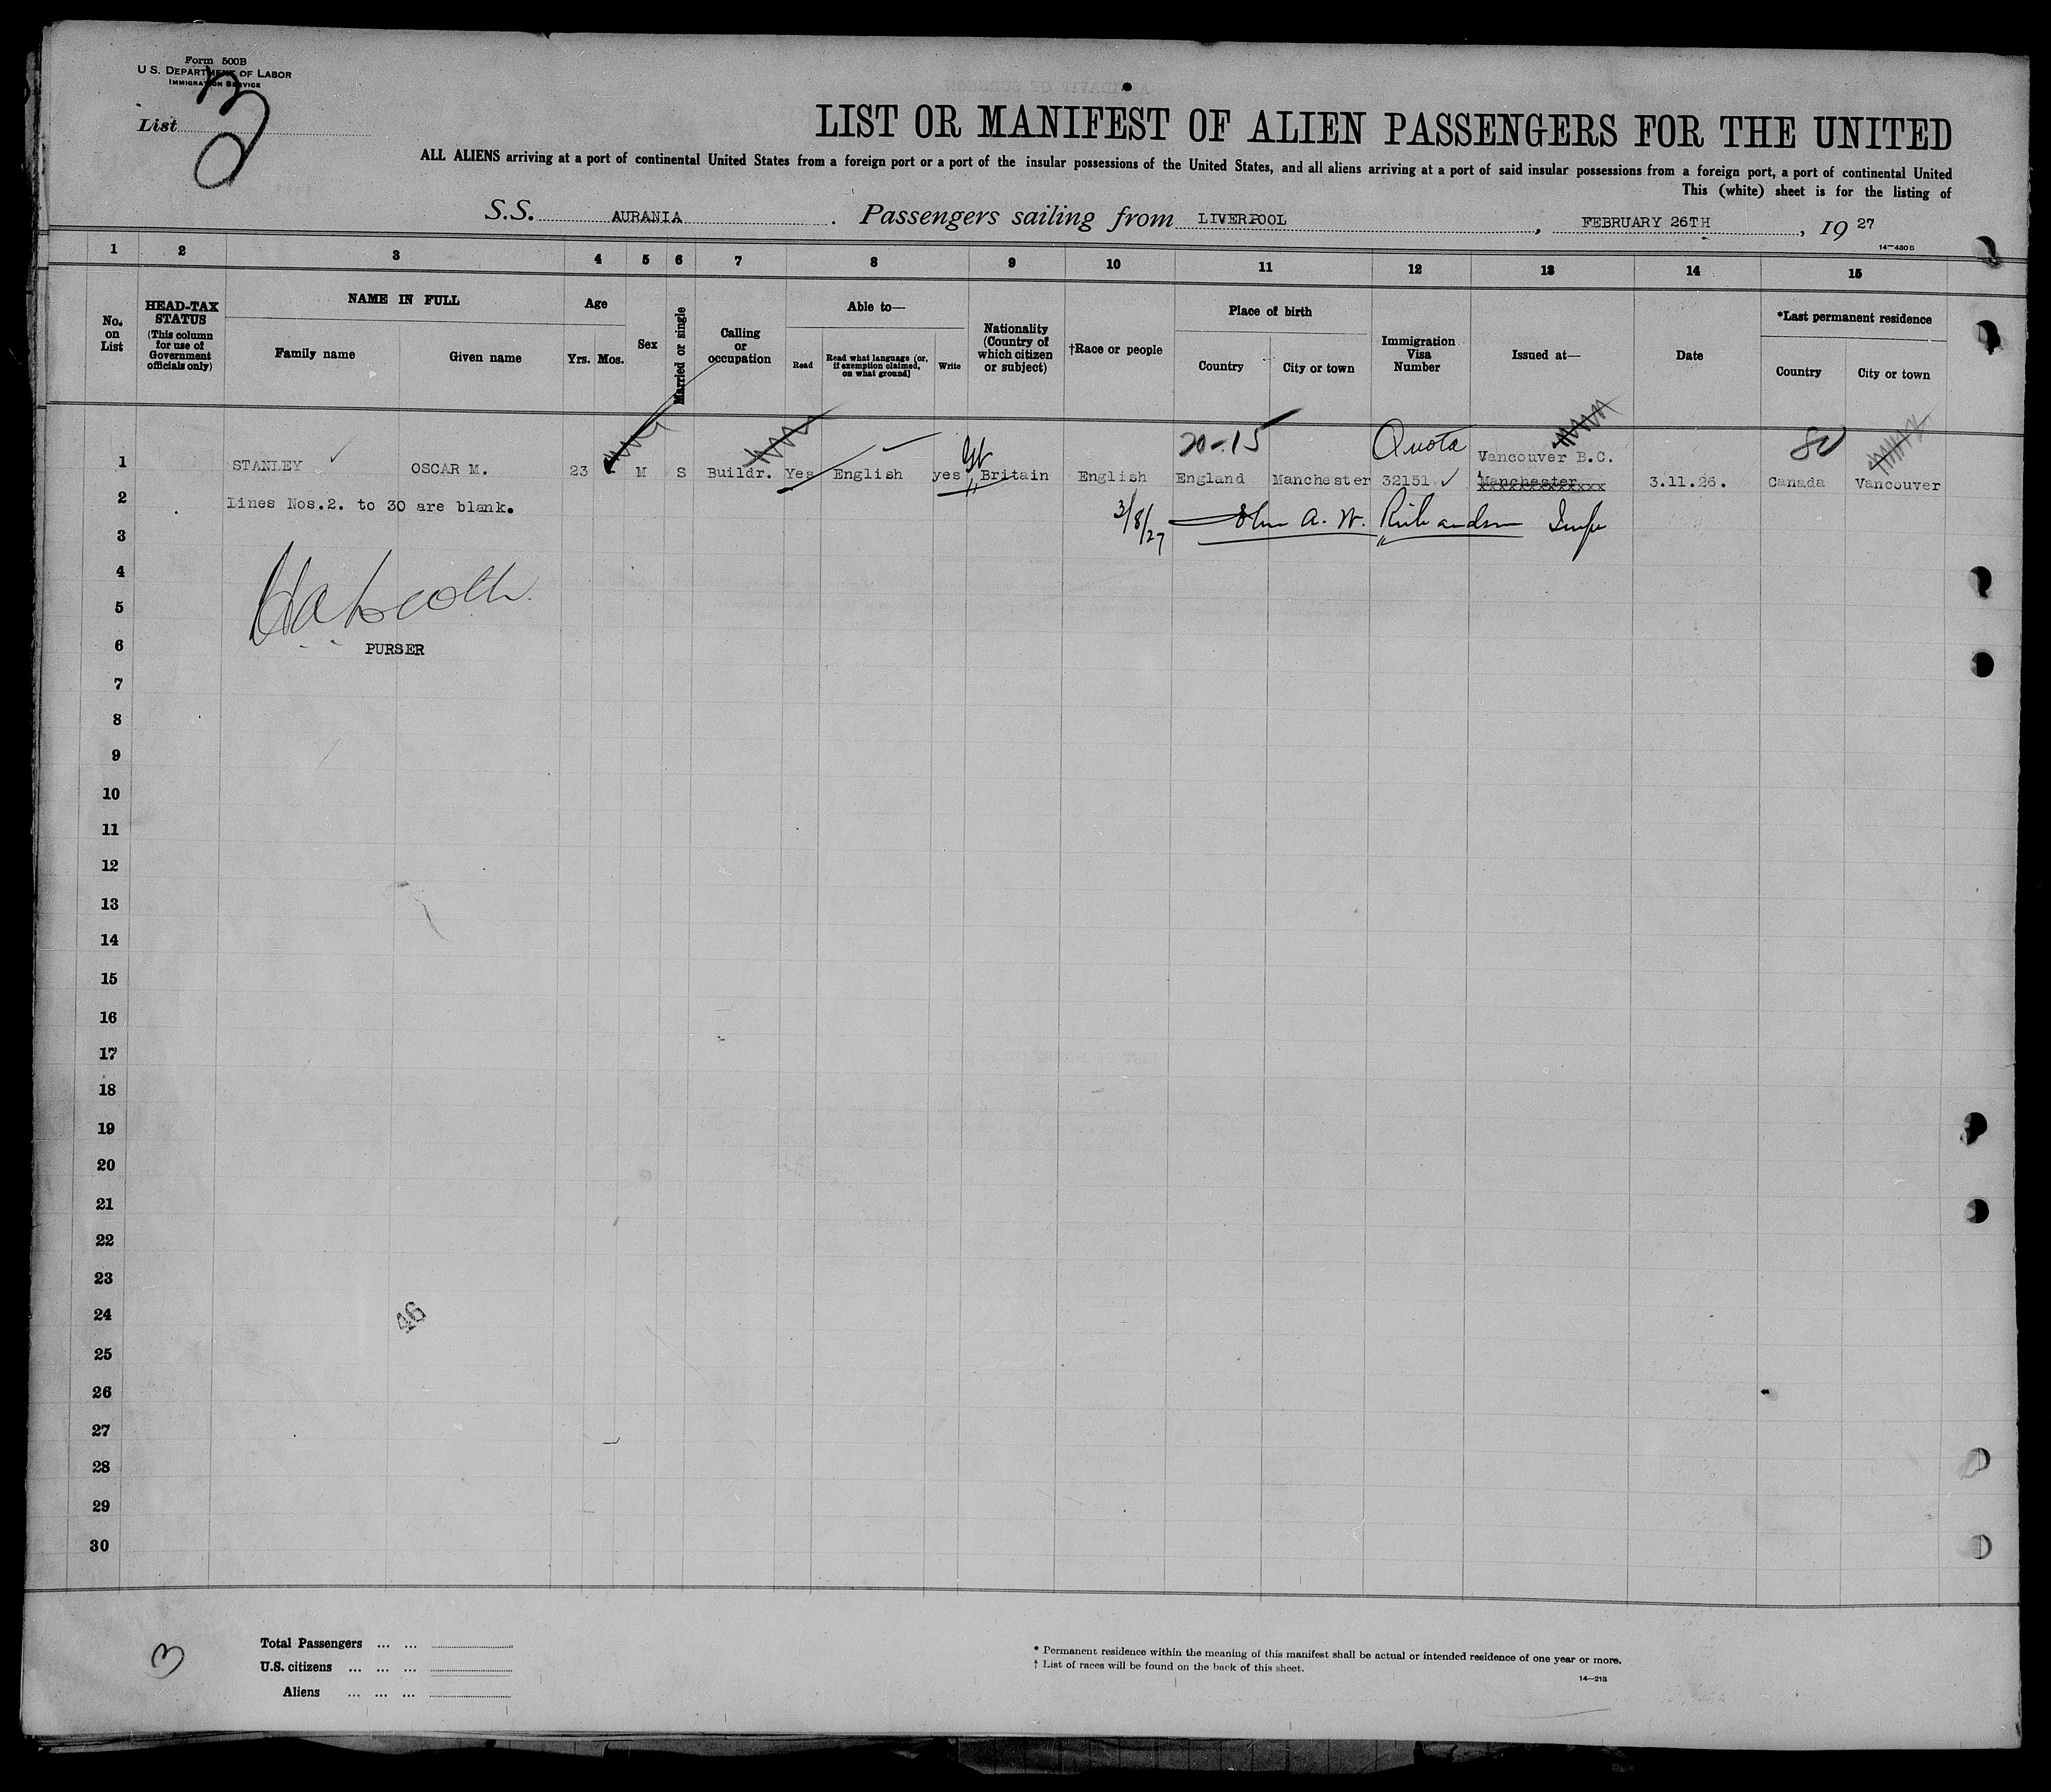 Form 500B
U.S. DEPARTMENT OF LABOR
IMMIGRATION SERVICE
List
LIST OR MANIFEST OF ALIEN PASSENGERS FOR THE UNITED
ALL ALIENS arriving at a port of continental United States from a foreign port or a port of the insular possessions of the United States, and all aliens arriving at a port of said insular possessions from a foreign port, a port of continental United
This (white) sheet is for the listing of
S.S. AURANIA. Passengers sailing from LIVERPOOL, FEBRUARY 26TH, 1927
14—480 B
1 2 3 4 5 6 7 8 9 10 11 12 13 14 15
No. on List
HEAD-TAX STATUS (This column for use of Government officials only)
NAME IN FULL
Family name Given name
Age
Yrs. Mos.
Sex
Married or single
Calling or occupation
Able to—
Read Read what language [or, if exemption claimed, on what ground] Write
Nationality (Country of which citizen or subject)
†Race or people
Place of birth
Country City or town
Immigration Visa Number
Issued at—
Date
*Last permanent residence
Country City or town
20-15 Quota
Vancouver B.C.
1 STANLEY OSCAR M. 23 M S Buildr. Yes English yes Gt Britain English England Manchester 32151 Manchester 3.11.26. Canada Vancouver
2 Lines Nos.2. to 30 are blank.
3/8/27 John A. W. Richardson Insp
3
4
5
6 PURSER
7
8
9
10
11
12
13
14
15
16
17
18
19
20
21
22
23
24 46
25
26
27
28
29
30
3
Total Passengers ... ...
U.S. citizens ... ... ...
Aliens ... ... ...
* Permanent residence within the meaning of this manifest shall be actual or intended residence of one year or more.
† List of races will be found on the back of this sheet.
14—218